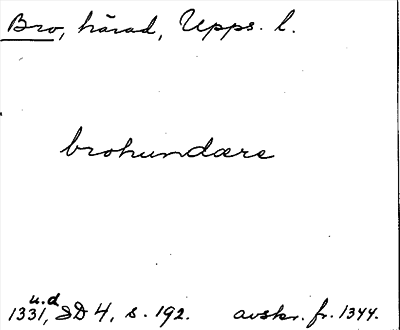 Bro, härad, Upps. l.
brohundære
1331, u.d SD 4, s. 192. avskr. fr. 1344.